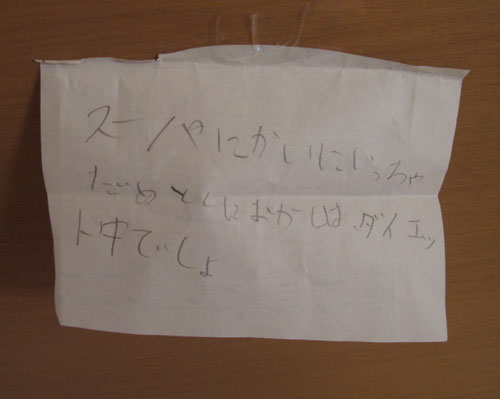 スーパにかいにいっちゃ
だめとくにおかしは、ダイエッ
ト中でしょ